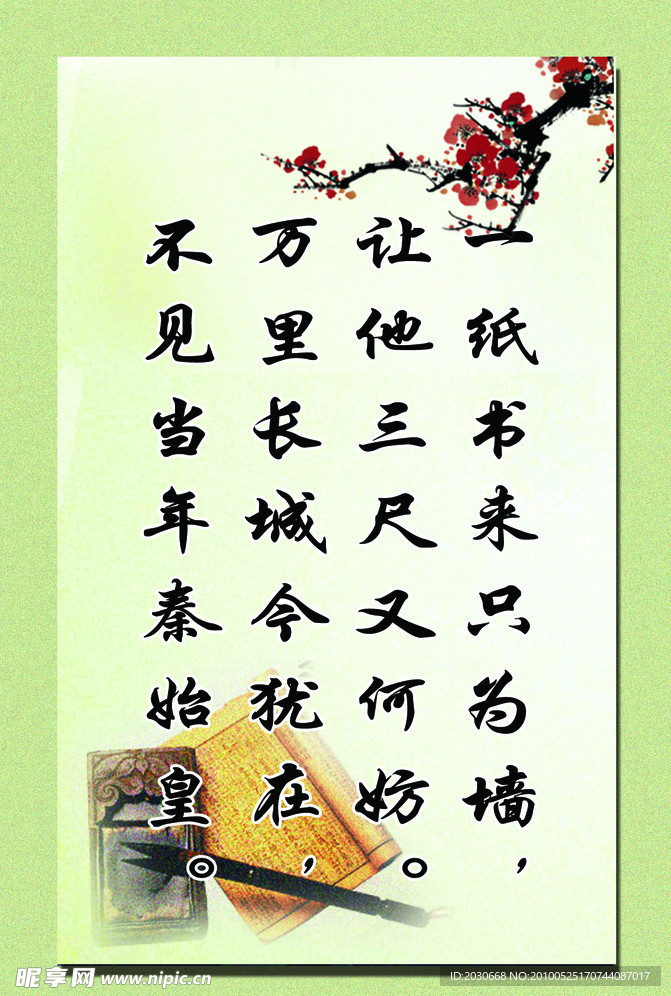 一纸书来只为墙，
让他三尺又何妨。
万里长城今犹在，
不见当年秦始皇。
昵享网 www.nipic.cn
ID:2030668 NO:20100525170744087017